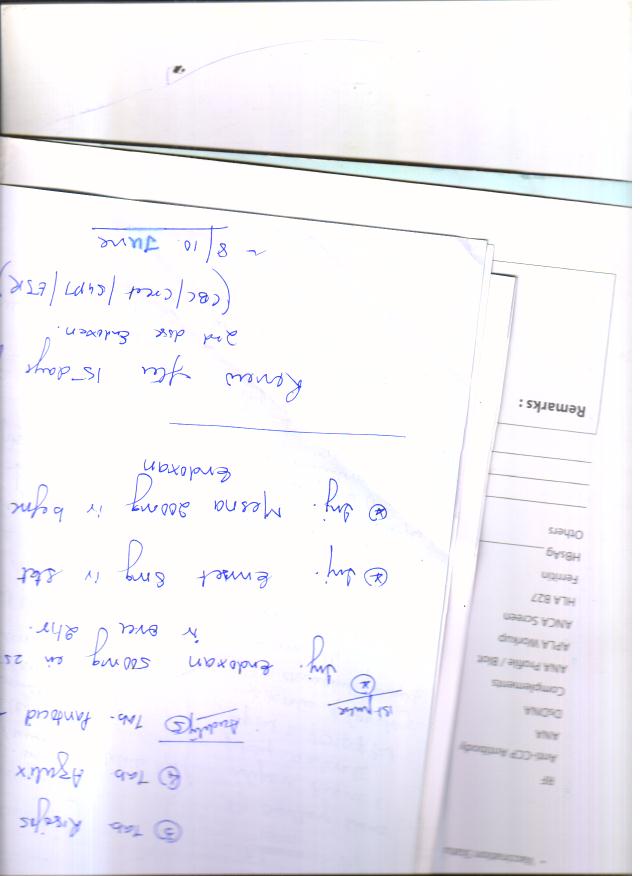 ③ Tab Risofos
④ Tab Azulix
⑤ Tab. Pantocid -
1st pulse
Inj. Endoxan 500mg in 25
iv over 2hr.
Inj. Emset 8mg iv stat
Inj. Mesna 200mg iv before
Endoxan
Review after 15 days
2nd dose Endoxan.
(CBC/Creat/SGPT/ESR)
~ 8/10 June
- Vaccination Status
RF
Anti-CCP Antibody
ANA
DsDNA
Complements
ANA Profile / Blot
APLA Workup
ANCA Screen
HLA B27
Ferritin
HBsAg
Others
Remarks :